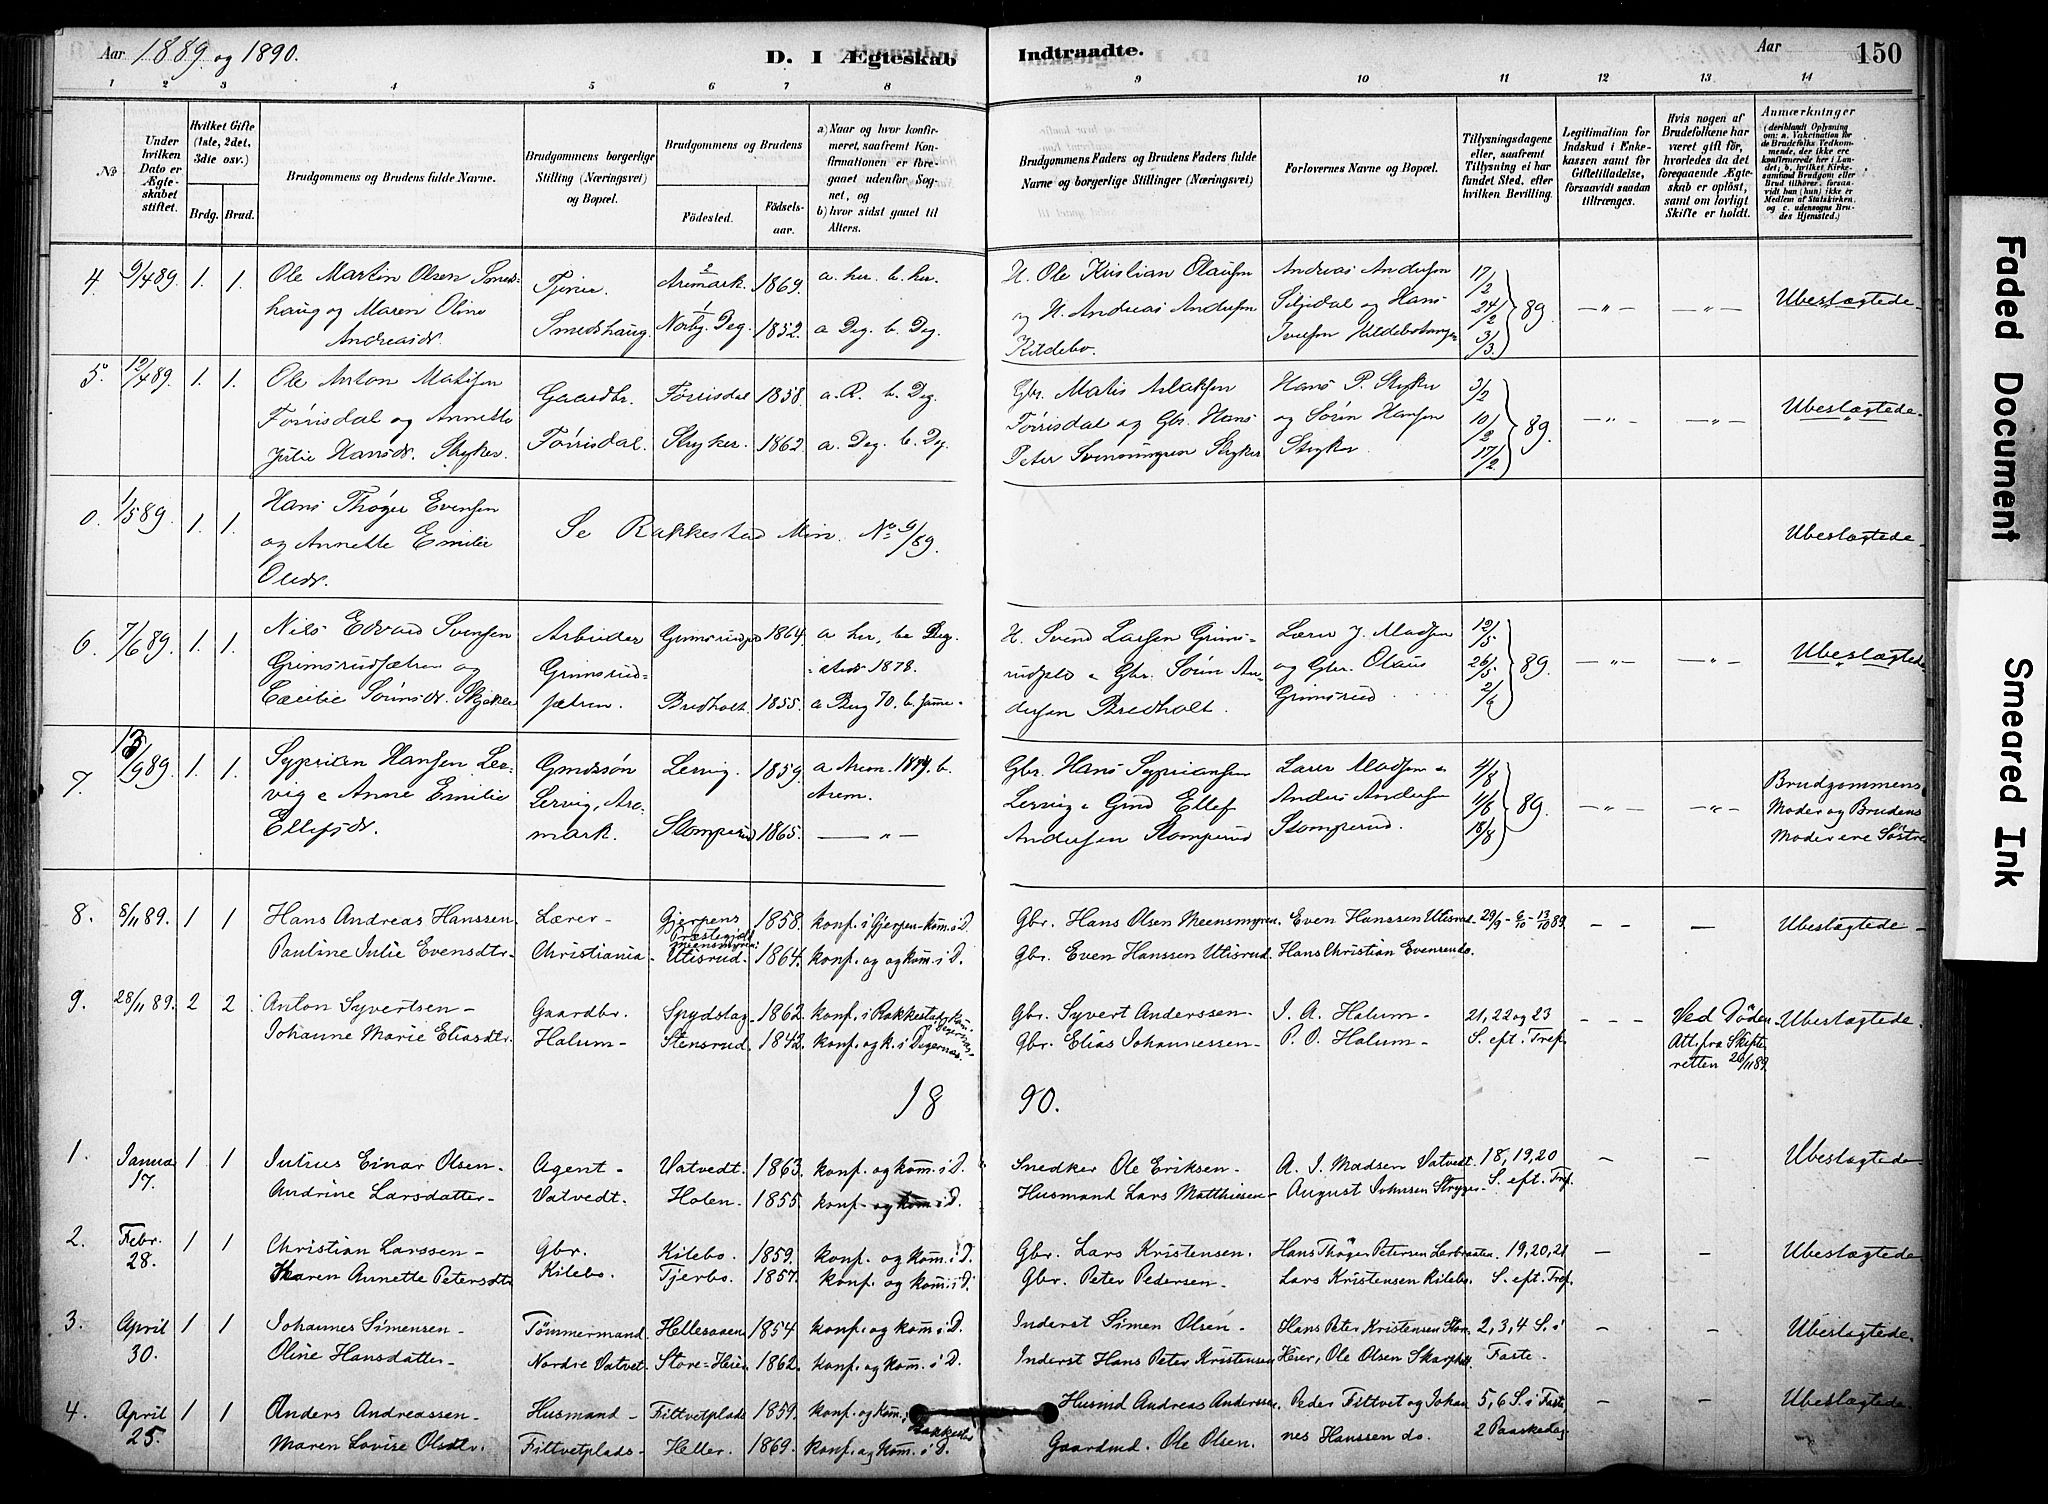 Aar 1889 og 1890.
D. I Ægteskab Indtraadte.
Aar 150
1 2 3 4 5 6 7 8 9 10 11 12 13 14
No
Under hvilken Dato er Ægteskabet stiftet.
Hvilket Gifte (1ste, 2det, 3die osv.)
Brdg. Brud.
Brudgommens og Brudens fulde Navne.
Brudgommens borgerlige Stilling (Næringsvei) og Bopæl.
Brudgommens og Brudens
Födested. Födsels-aar.
a) Naar og hvor konfirmeret, saafremt Konfirmationen er foregaaet udenfor Sognet, og
b) hvor sidst gaaet til Alters.
Brudgommens Faders og Brudens Faders fulde Navne og borgerlige Stillinger (Næringsvei)
Forlovernes Navne og Bopæl.
Tillysningsdagene eller, saafremt Tillysning ei har fundet Sted, efter hvilken Bevilling.
Legitimation for Indskud i Enkekassen samt for Giftetilladelse, forsaavidt saadan tiltrænges.
Hvis nogen af Brudefolkene har været gift för, hvorledes da det foregaaende Ægteskab er oplöst, samt om lovligt Skifte er holdt.
Anmærkninger
(deriblandt Oplysning om: a. Vakcination for de Brudefolks Vedkommende, der ikke ere konfirmerede her i Landet; b. hvilket Kirkesamfund Brudgom eller Brud tilhörer, forsaavidt han (hun) ikke er Medlem af Statskirken, og c. udensogns Brudes Hjemsted.)
4. 9/4 89. 1. 1. Ole Martin Olsen Smeds- Tjener Aremark. 1869. a. her. b. her. H. Ole Kristian Olausen Andreas Andersen 17/2
haug og Maren Oline Smedshaug. Norbg. Deg. 1852. a Deg. b. Deg. og H. Andreas Andersen Siljidal og Hans 24/2 89. — " — — " — Ubeslægtede
Andreasdr. Kildebo. Iversen Kildebo 3/3.
5. 12/4 89. 1. 1. Ole Anton Matisen Gaardbr. Forrisdal 1858. a. R. b. Deg. Gbr. Matis Aslaksen Hans P. Stryker 3/2
Forrisdal og Annette Forrisdal. Stryker. 1862. a. Deg. b. Deg. Forrisdal og Gbr. Hans og Sørin Hansen 10/2 89. — " — — " — Ubeslægtede
Julie Hansdr. Stryker. Peter Stryker Stryker 17/2
0. 1/5 89. 1. 1. Hans Thøger Evensen Se Rakkestad Min. No 9/89. Ubeslægtede
og Annette Emilie
Olsdr.
6. 7/6 89. 1. 1. Nils Edvard Svensen Arbeider Grimsrudpl 1864. a her, b Deg. H. Svend Larsen Grims- Lærer J. Madsen 12/5
Grimsrudsætren og Grimsrud- 1878. rudpls & Gbr. Sørin An- og Gbr. Olaus 26/5 89. — " — — " — Ubeslægtede
Cæcilie Sørinsdr. sætren. Bredholt. 1855. a Berg 70. b. samme. dersen Bredholt. Grimsrud 2/6
7. 13/9 89. 1. 1. Syprian Hansen Ler- Gmdssøn Lervig. 1859. a Arem. 1874. b. Gbr. Hans Sypriansen Lærer Madsen & 4/8 Brudgommens
vig & Anne Emilie Lervig, Are- Arem. Lervig & Gmd Ellef Anders Andersen 11/8 89. — " — — " — Moder og Brudens
Ellefsdr. mark. Stomperud 1865. — " — Andersen Stomperud Stomperud. 18/8 Moder ere Søstre
8. 8/11 89. 1 1 Hans Andreas Hanssen. Lærer- Gjerpens Præstegjeld Meensmyren: 1858. konf. i Gjerpen-kom. i D. Gbr. Hans Olsen Meensmyren. Even Hanssen Utisrud. 29/9 - 6/10 - 13/10 89. - - — Ubeslægtede -
Pauline Julie Evensdtr- Christiania- Utisrud- 1864. konf. og og kom. i D. Gbr. Even Hanssen Utisrud. Hans Christian Evensen do.
9. 28/11 89. 2 2 Anton Syvertsen- Gaardbr. Spydstag 1862. konf. i Rakkestad kom. i Degernæs. Gbr. Syvert Anderssen- I. A. Halum- 21, 22 og 23 - - - Ved Døden Ubeslægtede.
Johanne Marie Eliasdtr. Halum- Stensrud. 1842. konf. og k. i Degernæs. Gbr. Elias Johannessen- P. O. Halum- S. eft. Tref. Att. fra Skifte-
retten 26/11 89.
18 90.
1. Janua 17. 1 1 Julius Einar Olsen- Agent- Vatvedt. 1863. konf. og kom. i D. Snedker Ole Eriksen- A. J. Madsen Vatvedt. 18, 19, 20 — — Ubeslægtede
Andrine Larsdatter- Vatvedt. Holen- 1855. konf. og kom i D. Husmand Lars Matthiesen- August Johnsen S. eft. Tref.
2. Febr. 28. 1 1 Christian Larssen- Gbr. Kilebo. 1859. konf. og kom. i D. Gbr. Lars Kristensen. Hans Thøger Petersen 19, 20, 21 — — Ubeslægtede
Karen Annette Petersdtr Kilebo. Tjerbo. 1857. konf. og kom. i D. Gbr. Peter Pedersen- Lars Kristensen Kilebo. S. eft. Tref.
3. April 30. 1 1 Johannes Simensen- Tømmermand Hellesaaen 1854 konf. og kom. i D. Inderst Simen Olsen- Hans Peter Kristensen Store 2, 3, 4 S. i — — Ubeslægtede.
Oline Hansdatter- Nordre Vatvet. Store=Heier 1862. konf. og kom. i D. Inderst Hans Peter Kristensen Heier, Ole Olsen Faste-
4. April 25. 1 1 Anders Andreassen- Husmand- Fittvetplads 1859. konf. og kom. i Rakkestad Husmd Andreas Anderssen. Peder Fittvet og Johan- 5, 6 S. i Faste — — Ubeslægtede.
Maren Lovise Olsdtr. Fittvetplads- Heller. 1869. konf. og kom. i D. Gaardmd. Ole Olsen. nes Hanssen do. 2 Paaskedag
Faded Document
Smeared Ink